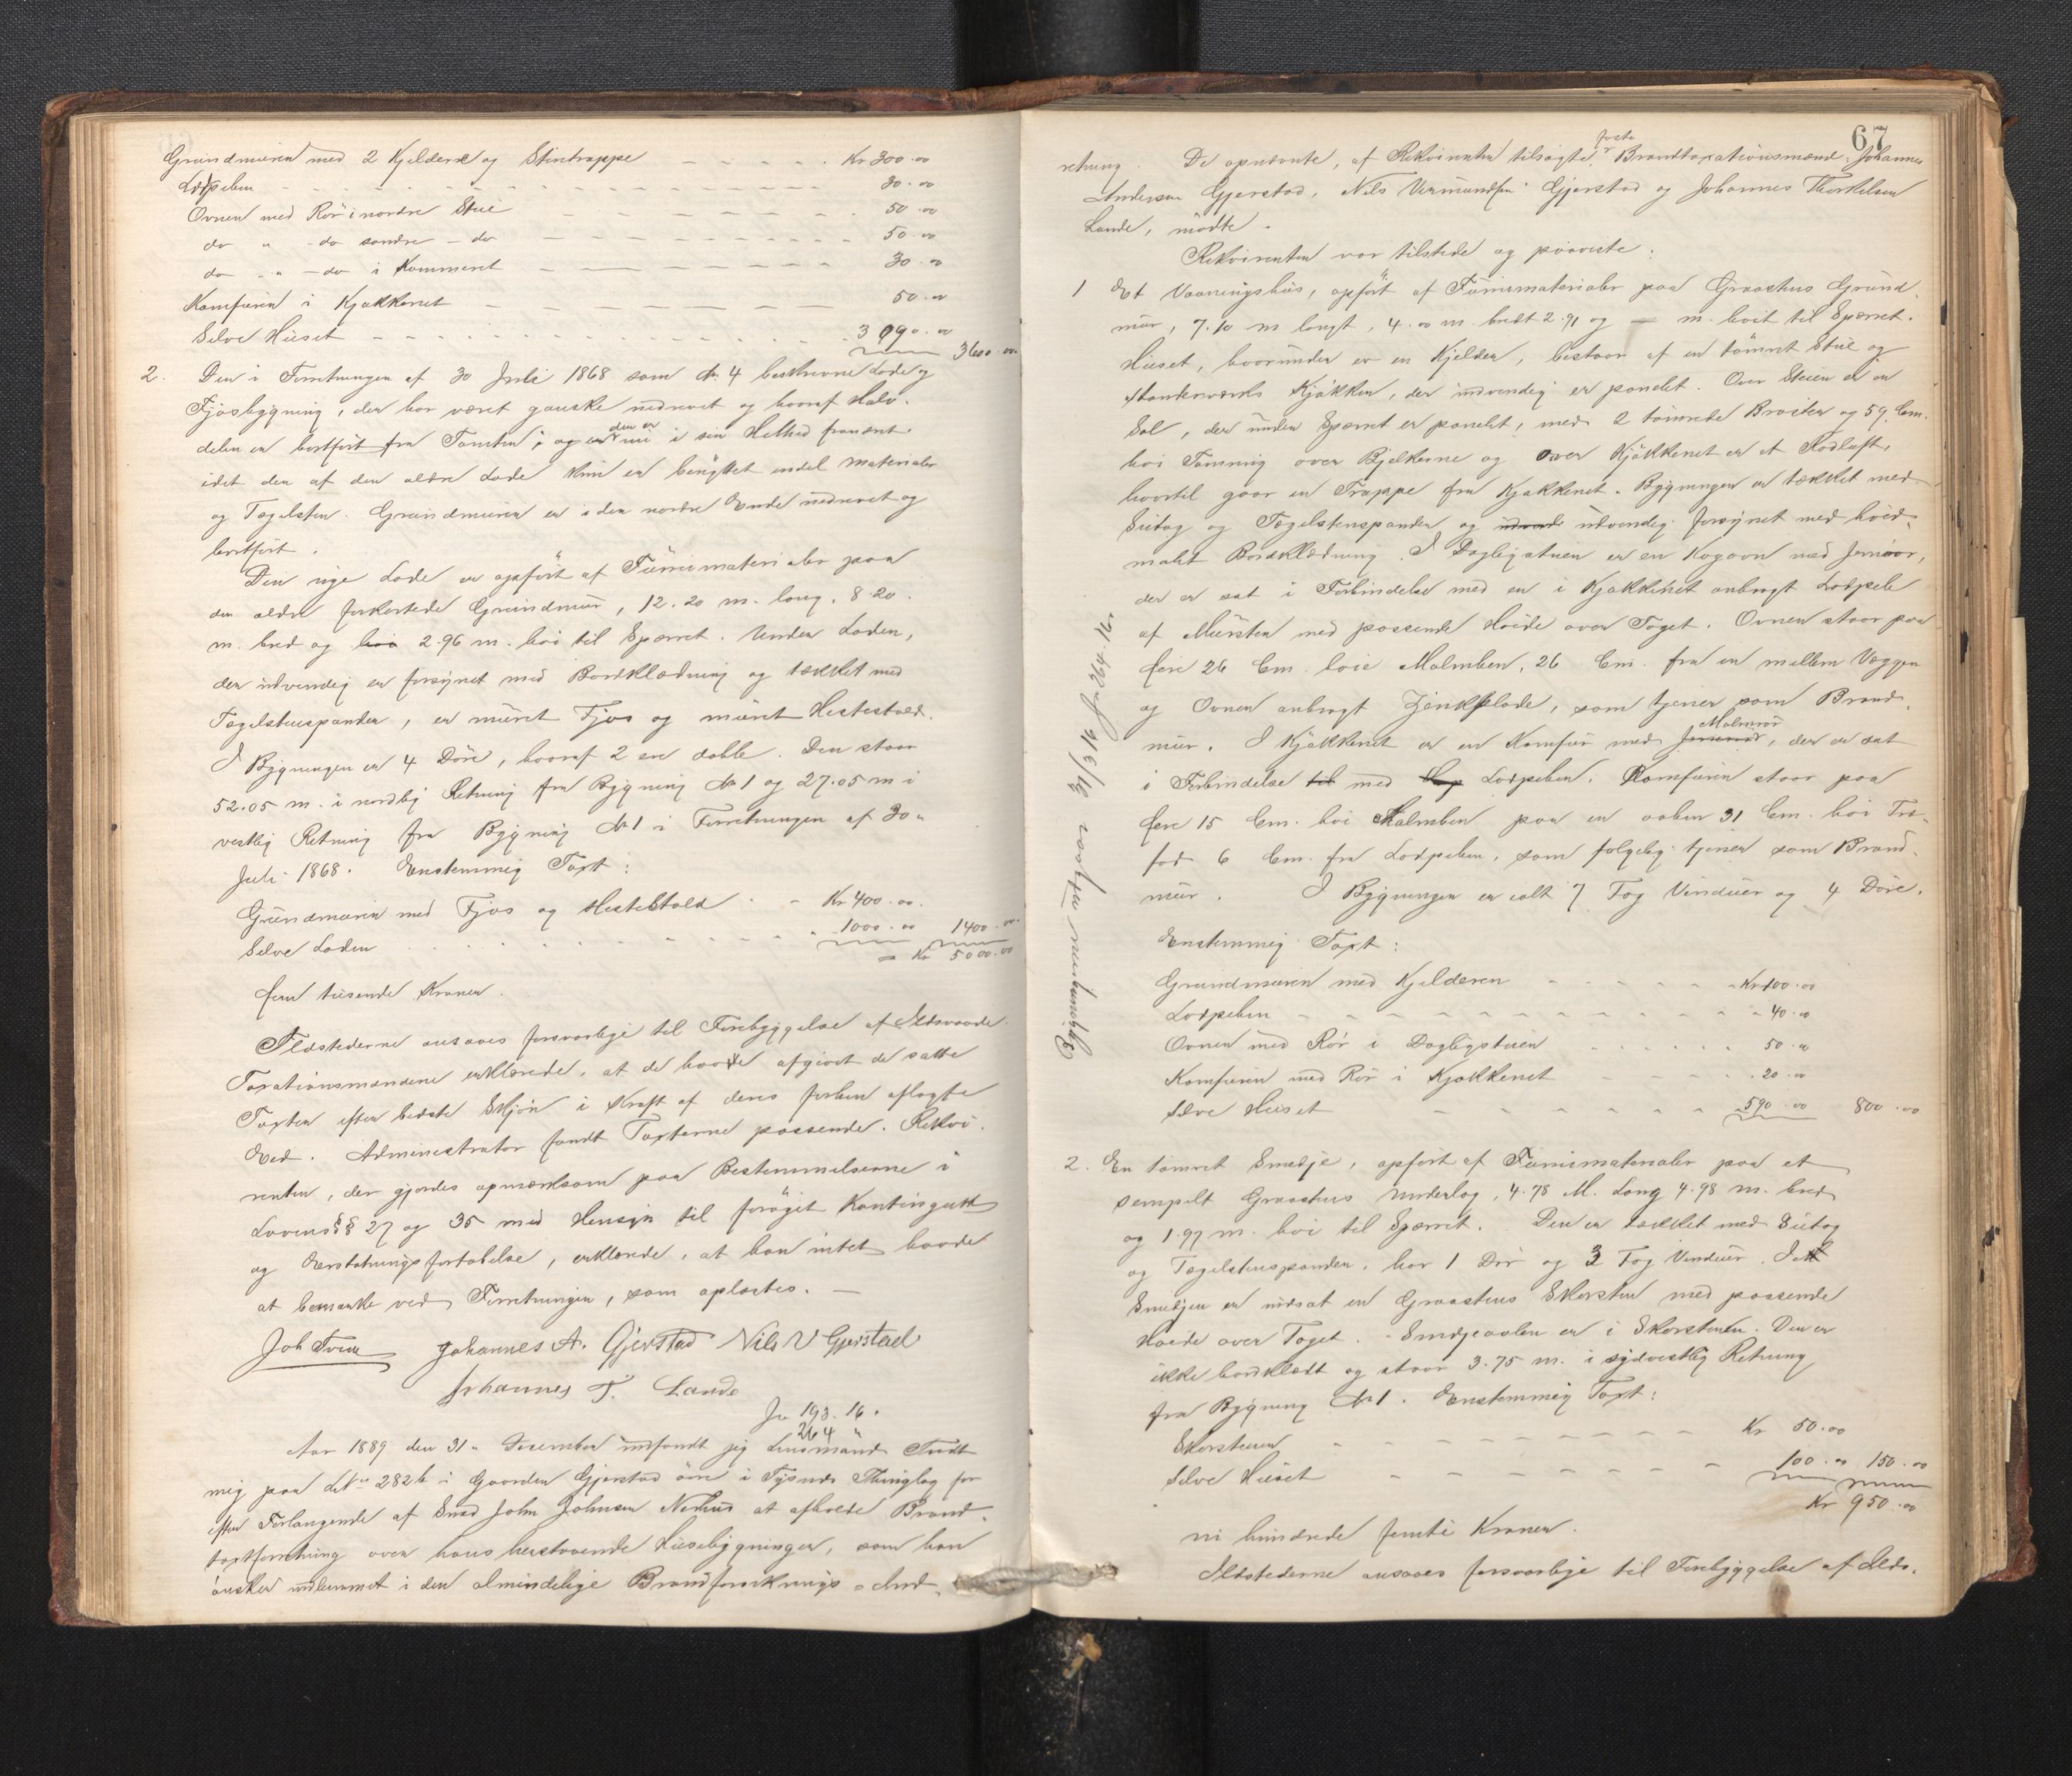 Grundmuren med 2 Kjeldere og Stentrappe - - - - - Kr 300.00
Lodpiben - - - - - - - - - - - 30.00
Ovnen med Rör i nordre Stue - - - - - - 50.00
do " - do søndre - do - - - - - - - - 50.00
do " - do i Kammeret - - - - - - - 30.00
Komfuren i Kjøkkenet - - - - - 50.00
Selve Huset - - - - - - - - - - - 3090.00
3600.00
2. Den i Forretningen af 30 Juli 1868 som № 4 beskrevne Lade og
Fjøsbygning, der har været ganske nedrevet og hvoraf Halv-
delen er bortført fra Tomten, og er den nu i sin Helhed
idet der af den ældre Lade kun er benyttet endel Materialer
og Tagelsten. Grundmuren er i den nordre Ende nedrevet og
bortført.
Den nye Lade er opført af Furumaterialer paa
den ældre forkortede Grundmur, 12.20 m. lang, 8.20
m. bred og 2.96 m. høi til Sparret. Under Laden,
der udvendig er forsynet med Bordklædning og tækket med
Tagelstenspander, er muret Fjøs og muret Hestestald.
I Bygningen er 4 Døre, hvoraf 2 ere doble. Den staar
52.05 m. i nordlig Retning fra Bygning № 1 og 27.05 m i
vestlig Retning fra Bygning № 1 i Forretningen af 30"
Juli 1868. Enstemmig Taxt:
Grundmuren med Fjøs og Hestestald - - Kr 400.00.
Selve Laden - - - - - - - - - 1000.00 1400.00
= Kr 5000.00
fem tusende Kroner.
Ildstederne ansaaes forsvarlige til Forebyggelse af Ildsvaade.
Taxationsmændene erklærede, at de havde afgivet de satte
Taxter efter bedste Skjøn i Kraft af deres forhen aflagte
Eed. Administrator fandt Taxterne passende. Rekvi-
renten, der gjordes opmærksom paa Bestemmelserne i
Lovens §§ 27 og 35 med Hensyn til forøget Kontingent
og Erstatningsfortabelse, erklærede, at han intet havde
at bemærke ved Forretningen, som oplæstes. —
Joh Tvedt Johannes A. Gjerstad Nils V Gjerstad
Johannes T. Lande
Jr 193.16.
264
Aar 1889 den 31" December indfandt jeg Lensmand Tvedt
mig paa Lit№ 282b i Gaarden Gjerstad øvre i Tysnes Thinglag for
efter Forlangende af Smed John Johnsen Nerhus at afholde Brand-
taxtforretning over hans herstaaende Husebygninger, som han
ønsker indlemmet i den almindelige Brandforsikrings-Ind-
67
retning. De opnævnte, af Rekvirenten tilsagte faste Brandtaxationsmænd: Johannes
Andersen Gjerstad, Nils Vermundsen Gjerstad og Johannes Thorkelsen
Lande, mødte.
Rekvirenten var tilstede og paaviste:
1 Et Vaaningshus, opført af Furumaterialer paa Graastens Grund-
mur, 7.10 m langt, 4.00 m. bredt 2.91 og — m. høit til Sparret.
Huset, hvorunder er en Kjelder, bestaar af en tømret Stue og
Standerværks Kjøkken, der indvendig er panelet. Over Stuen er en
Sal, der under Sparret er panelet, med 2 tømrede Brøster og 59 Cm.
høi Tømring over Bjelkerne og over Kjøkkenet er et Rødloft,
hvortil gaar en Trappe fra Kjøkkenet. Bygningen er tækket med
Sutag og Tagelstenspander og udvendig forsynet med hvid-
malet Bordklædning. I Dagligstuen er en Kogovn med Jernrør,
der er sat i Forbindelse med en i Kjøkkenet anbragt Lodpibe
af Mursten med passende Høide over Taget. Ovnen staar paa
fire 26 Cm. høie Malmben, 26 Cm. fra en mellem Væggen
og Ovnen anbragt Zinkplade, som tjener som Brand-
mur. I Kjøkkenet er en Komfur med Malmrør, der er sat
i Forbindelse til med Lodpiben. Komfuren staar paa
fire 15 Cm. høi Malmben paa en aaben 31 Cm. høi Træ-
fod 6 Cm. fra Lodpiben, som følgelig tjener som Brand-
mur. I Bygningen er ialt 7 Fag Vinduer og 4 Døre.
Enstemmig Taxt:
Grundmuren med Kjelderen - - - - - - Kr 100.00
Lodpiben - - - - - - - - - - - 40.00
Ovnen med Rør i Dagligstuen - - - - - - 50.00
Komfuren med Rør i Kjøkkenet - - - - 20.00
Selve Huset - - - - - - - 590.00 800.00
2. En tømret Smedje, opført af Furumaterialer paa et
simpelt Graastens Underlag, 4.78 M. Lang 4.98 m. bred
og 1.97 m. høi til Sparret. Den er tækket med Sutag
og Tagelstenspander, har 1 Dør og 3 Fag Vinduer. I
Smedjen er indsat en Graastens Skorsten med passende
Høide over Taget. Smedjeavlen er i Skorstenen. Den er
ikke bordklædt og staar 3.75 m. i sydvestlig Retning
fra Bygning № 1. Enstemmig Taxt:
Skorstenen - - - - - - - - - Kr 50.00
Selve Huset - - - - - - - - 100.00 150.00
Kr 950.00
ni hundrede femti Kroner.
Ildstederne ansaaes forsvarlige til Forebyggelse af Ilds-